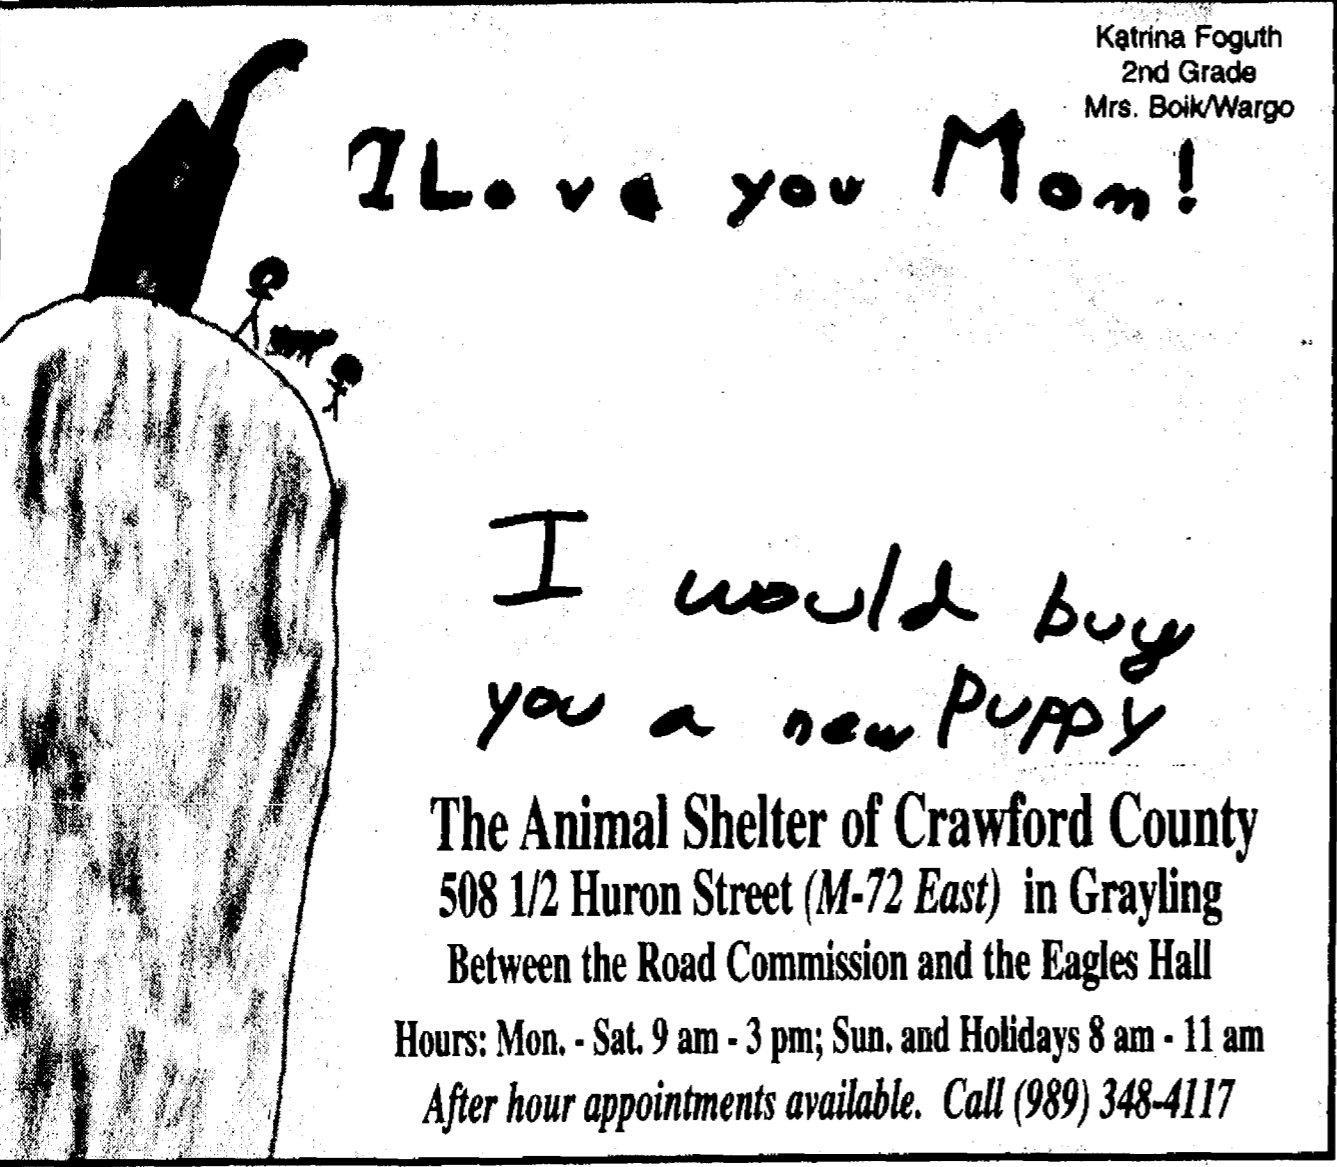 Katrina Foguth
2nd Grade
Mrs. Boik/Wargo
I Love you Mom!
I would buy
you a new Puppy
The Animal Shelter of Crawford County
508 1/2 Huron Street (M-72 East) in Grayling
Between the Road Commission and the Eagles Hall
Hours: Mon. - Sat. 9 am - 3 pm; Sun. and Holidays 8 am - 11 am
After hour appointments available. Call (989) 348-4117